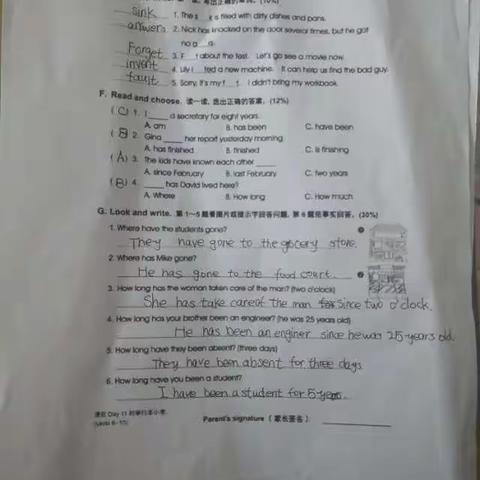 写出正确的单词。(10%)
sink 1. The s k is filled with dirty dishes and pans.
answers 2. Nick has knocked on the door several times, but he got
no a s.
Forget 3. F t about the test. Let's go see a movie now.
invent 4. Lily i ted a new machine. It can help us find the bad guy.
fault 5. Sorry, it's my f t. I didn't bring my workbook.
F. Read and choose. 读一读, 选出正确的答案。(12%)
(C) 1. I ____ a secretary for eight years.
A. am B. has been C. have been
(B) 2. Gina ____ her report yesterday morning.
A. has finished B. finished C. is finishing
(A) 3. The kids have known each other ____
A. since February B. last February C. two years
(B) 4. ____ has David lived here?
A. Where B. How long C. How much
G. Look and write. 第 1~5 题看图片或提示字回答问题, 第 6 题依事实回答。(30%)
1. Where have the students gone?
They have gone to the grocery store.
2. Where has Mike gone?
He has gone to the food court.
3. How long has the woman taken care of the man? (two o'clock)
She has take care of the man since two o'clock.
4. How long has your brother been an engineer? (he was 25 years old)
He has been an enginer since he was 25-years old.
5. How long have they been absent? (three days)
They have been absent for three days
6. How long have you been a student?
I have been a student for 5-years.
课后 Day 11 时举行本小考.
(Units 6-10)
Parent's signature ( 家长签名 )